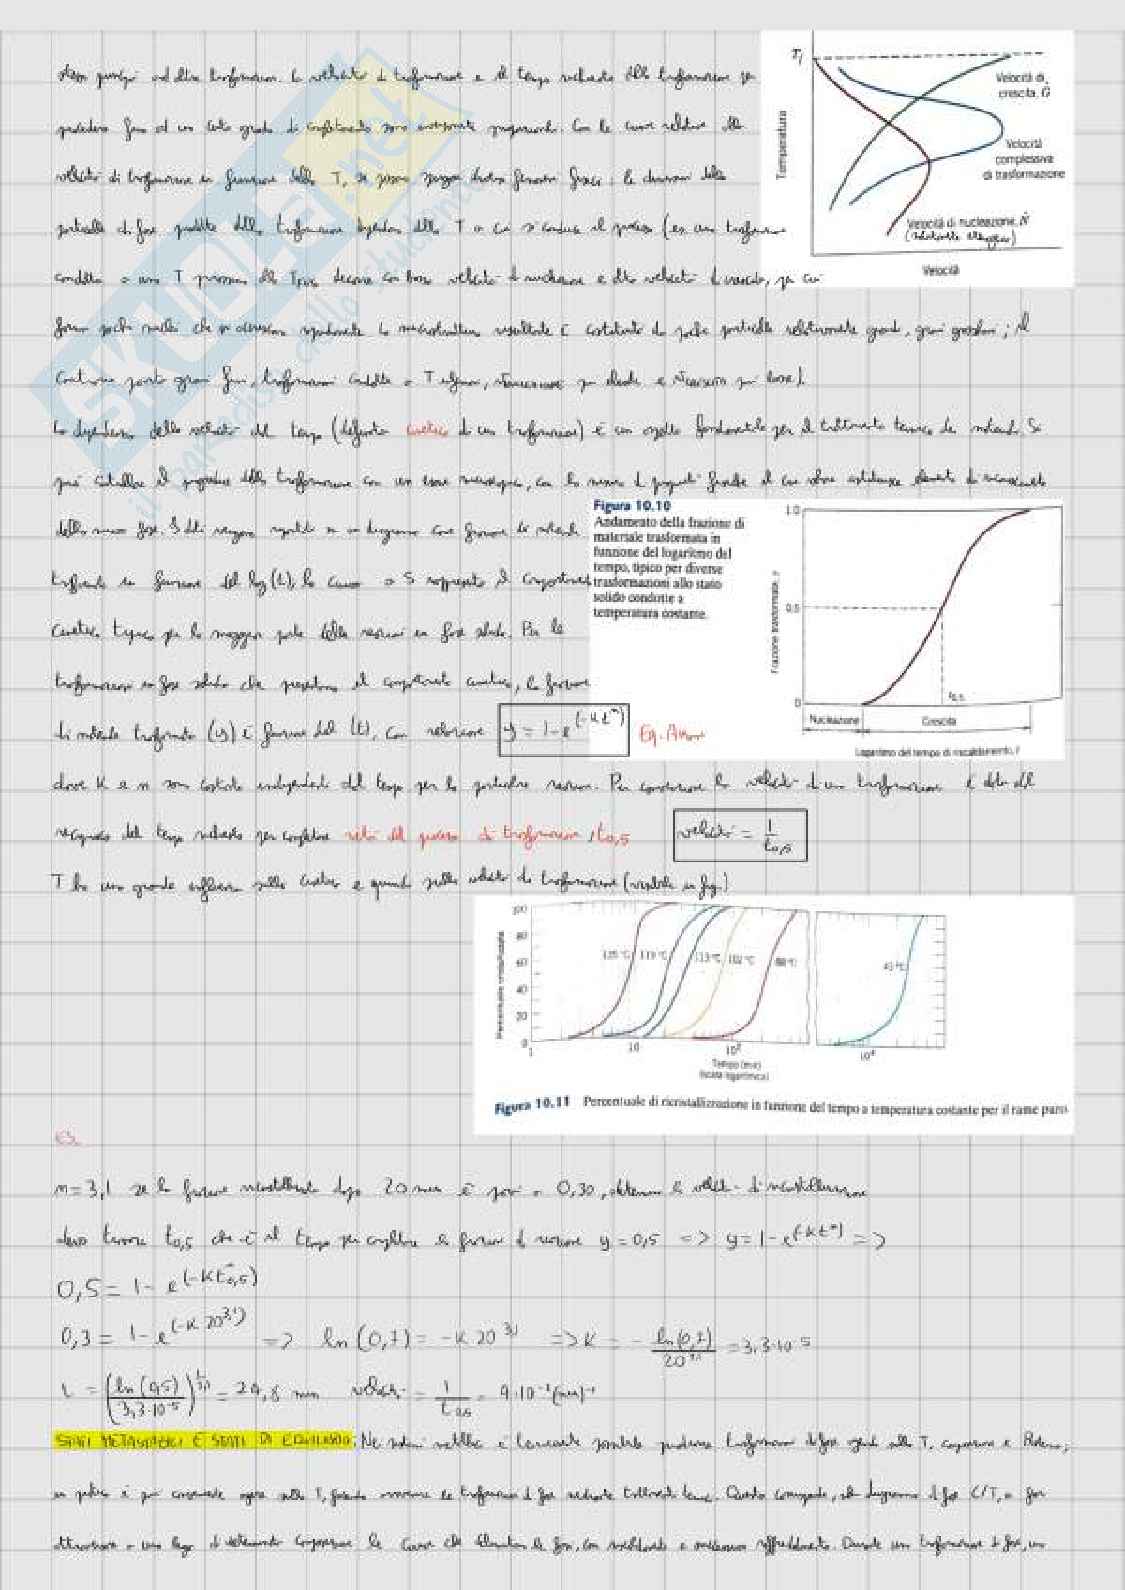 stessi principi ad altre trasformazioni. La velocità di trasformazione e il tempo richiesto dalla trasformazione per
procedere fino ad un certo grado di completamento sono inversamente proporzionali. Con le curve relative alla
velocità di trasformazione in funzione della T, si possono spiegare fenomeni fisici: le dimensioni delle
particelle di fase prodotte dalla trasformazione dipendono dalla T a cui si conduce il processo (es. una trasformazione
condotta a una T prossima alla T fus avviene con bassa velocità di nucleazione e alta velocità di crescita, per cui
T
Velocità di
crescita, Ġ
Temperatura
Velocità
complessiva
di trasformazione
Velocità di nucleazione, Ṅ
Velocità
pochi nuclei che si rapidamente la microstruttura risultante è costituita da poche particelle relativamente grandi, grani grossolani; il
contrario porta grani fini, trasformazioni condotte a T inferiori, nucleazione più elevata e crescita più bassa).
La dipendenza della velocità dal tempo (definita cinetica di una trasformazione) è un aspetto fondamentale per il trattamento termico dei materiali. Si
può controllare il progredire della trasformazione con un esame microscopico, con la misura di proprietà fisiche il cui valore elemento di riconoscimento
della nuova fase. I dati vengono riportati in un diagramma come frazione di materiale
trasformato in funzione del log(t), la curva a S rappresenta il comportamento
cinetico tipico per la maggior parte delle reazioni in fase solida. Per le
trasformazioni in fase solida che presentano il comportamento cinetico, la frazione
di materiale trasformato (y) è funzione del (t), con relazione y = 1-e^(-kt^n) Eq. Avrami
Figura 10.10
Andamento della frazione di
materiale trasformata in
funzione del logaritmo del
tempo, tipico per diverse
trasformazioni allo stato
solido condotte a
temperatura costante.
1.0
0.5
0
Frazione trasformata, y
t0,5
Nucleazione
Crescita
Logaritmo del tempo di riscaldamento, t
dove K e n sono costanti indipendenti dal tempo per la particolare reazione. Per convenzione la velocità di una trasformazione è data dal
reciproco del tempo richiesto per completare metà del processo di trasformazione, t0,5 velocità = 1/t0,5
T ha una grande influenza sulla cinetica e quindi sulla velocità di trasformazione (visibile in fig.)
100
80
60
40
20
0
135 °C
119 °C
113 °C
102 °C
88 °C
43 °C
1
10
10²
10⁴
Tempo (min)
(scala logaritmica)
Figura 10.11 Percentuale di ricristallizzazione in funzione del tempo a temperatura costante per il rame puro
ES.
n=3,1 se la frazione ricristallizzata dopo 20 min è pari a 0,30, determinare la velocità di ricristallizzazione
devo trovare t0,5 che è il tempo per completare la frazione di reazione y = 0,5 => y = 1-e^(-kt^n) =>
0,5 = 1- e^(-kt^n0,5)
0,3 = 1-e^(-K 20^3,1) => ln(0,7) = -K 20^3,1 => K = - ln(0,7)/20^3,1 = 3,3·10^-5
t = (ln(0,5)/3,3·10^-5)^1/3,1 = 24,8 min velocità = 1/t0,5 = 4·10^-2 (min)^-1
STATI METASTABILI E STATI DI EQUILIBRIO: Nei sistemi metallici è possibile produrre trasformazioni di fase agendo sulla T, composizione e Pressione;
in pratica è più conveniente agire sulla T, facendo avvenire le trasformazioni di fase mediante trattamenti termici. Questo corrisponde, nel diagramma di fase C/T, a far
attraversare a una lega di determinata composizione le curve che delimitano le fasi, con riscaldamento o raffreddamento. Durante una trasformazione di fase, una
SKUOLA.net
il paradiso dello studente